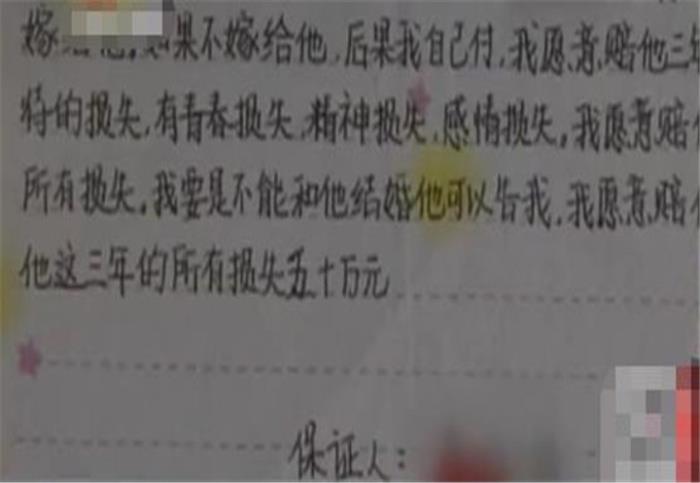 嫁给他,如果不嫁给他,后果我自己付,我愿意赔他三年
特的损失,有青春损失,精神损失,感情损失,我愿意赔
所有损失,我要是不能和他结婚他可以告我,我愿意赔
他这三年的所有损失五十万元
保证人: